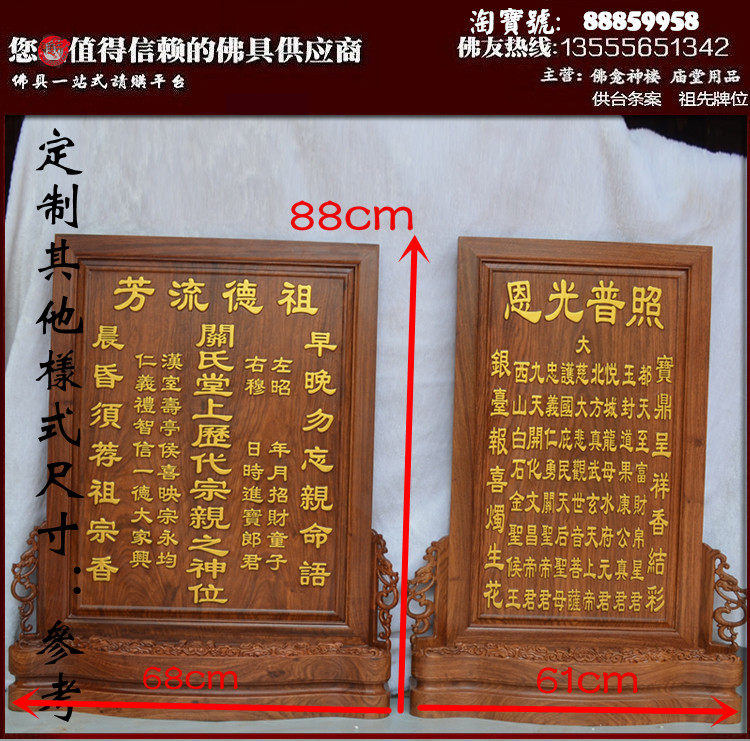 您值得信赖的佛具供应商
佛具一站式請購平台
淘寶號: 88859958
佛友热线:13555651342
主营: 佛龛神楼 庙堂用品
供台条案 祖先牌位
定制其他樣式尺寸:參考
88cm
祖德流芳
早晚勿忘親命語
左昭 年月招財童子
右穆 日時進寶郎君
關氏堂上歷代宗親之神位
漢室壽亭侯喜映宗永均
仁義禮智信一德大家興
晨昏須荐祖宗香
68cm
恩光普照
寶鼎呈祥香結彩
都天至富財帛星君
玉封道果康公真君
悦城龍母水府元君
北方真武玄天上帝
大慈大悲觀世音菩薩
護國庇民天后聖母
忠義仁勇關聖帝君
九天開化文昌帝君
西山白石金聖侯王
銀臺報喜燭生花
61cm